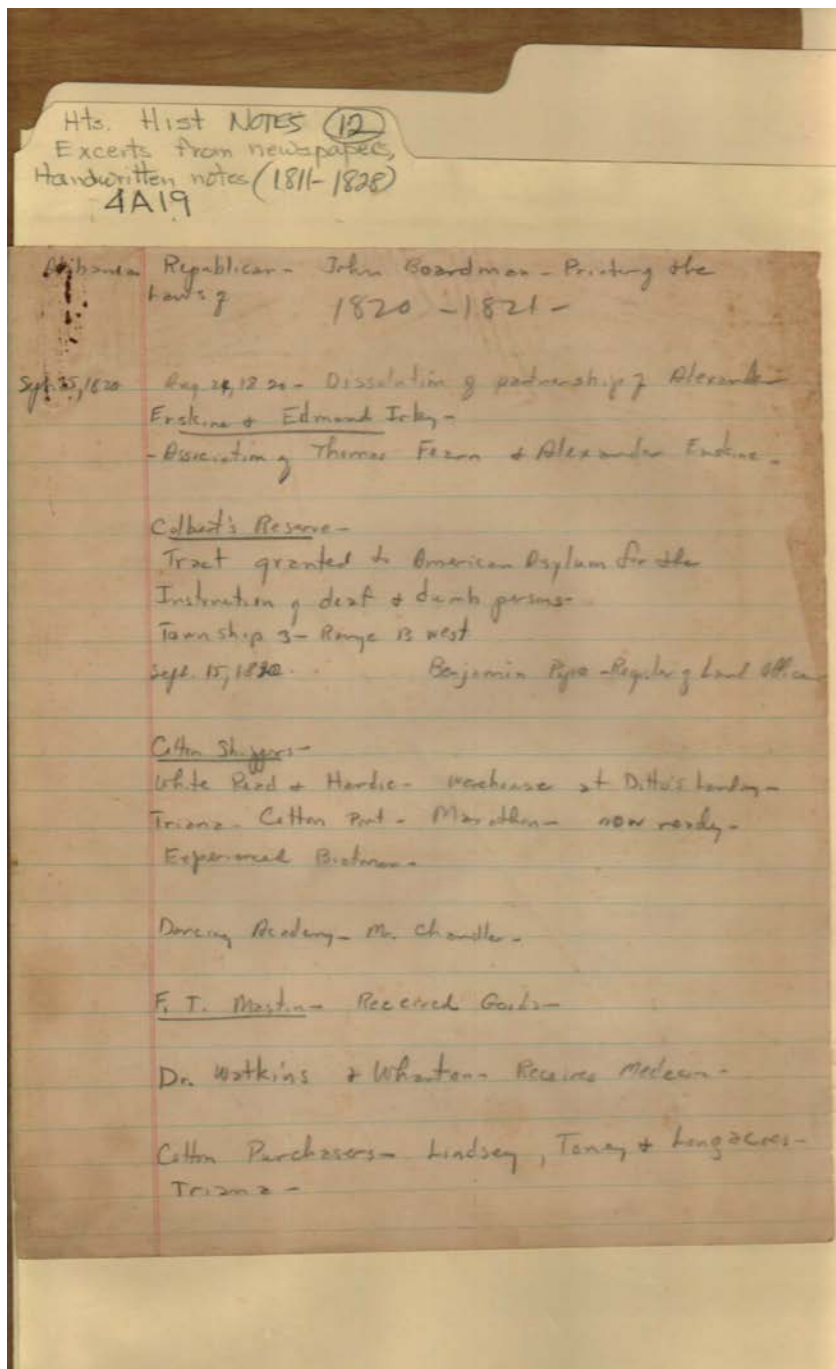 Hts. Hist NOTES (12)
Excerts from newspapers,
Handwritten notes (1811-1828)
4A19
Alabama Republican - John Boardman - Printing the
Laws of 1820 - 1821 -
Sept. 15, 1820 Aug 24, 1820 - Dissolution of partnership of Alexander
Erskine & Edmund Irby -
- Association of Thomas Fearn & Alexander Erskine -
Colbert's Reserve -
Tract granted to American Asylum for the
Instruction of deaf & dumb persons -
Township 3 - Range 13 west
Sept. 15, 1820 Benjamin - of Land Office
Cotton Shippers -
White Read & Hardie - warehouse at Ditto's Landing -
Triana - Cotton Port - Marathon - now ready -
Experienced Boatmen -
Dancing Academy - Mr. Chandler -
F. T. Mastin - Received Goods -
Dr. Watkins & Wharton - Receives -
Cotton Purchasers - Lindsey, Toney & Longacres -
Triana -